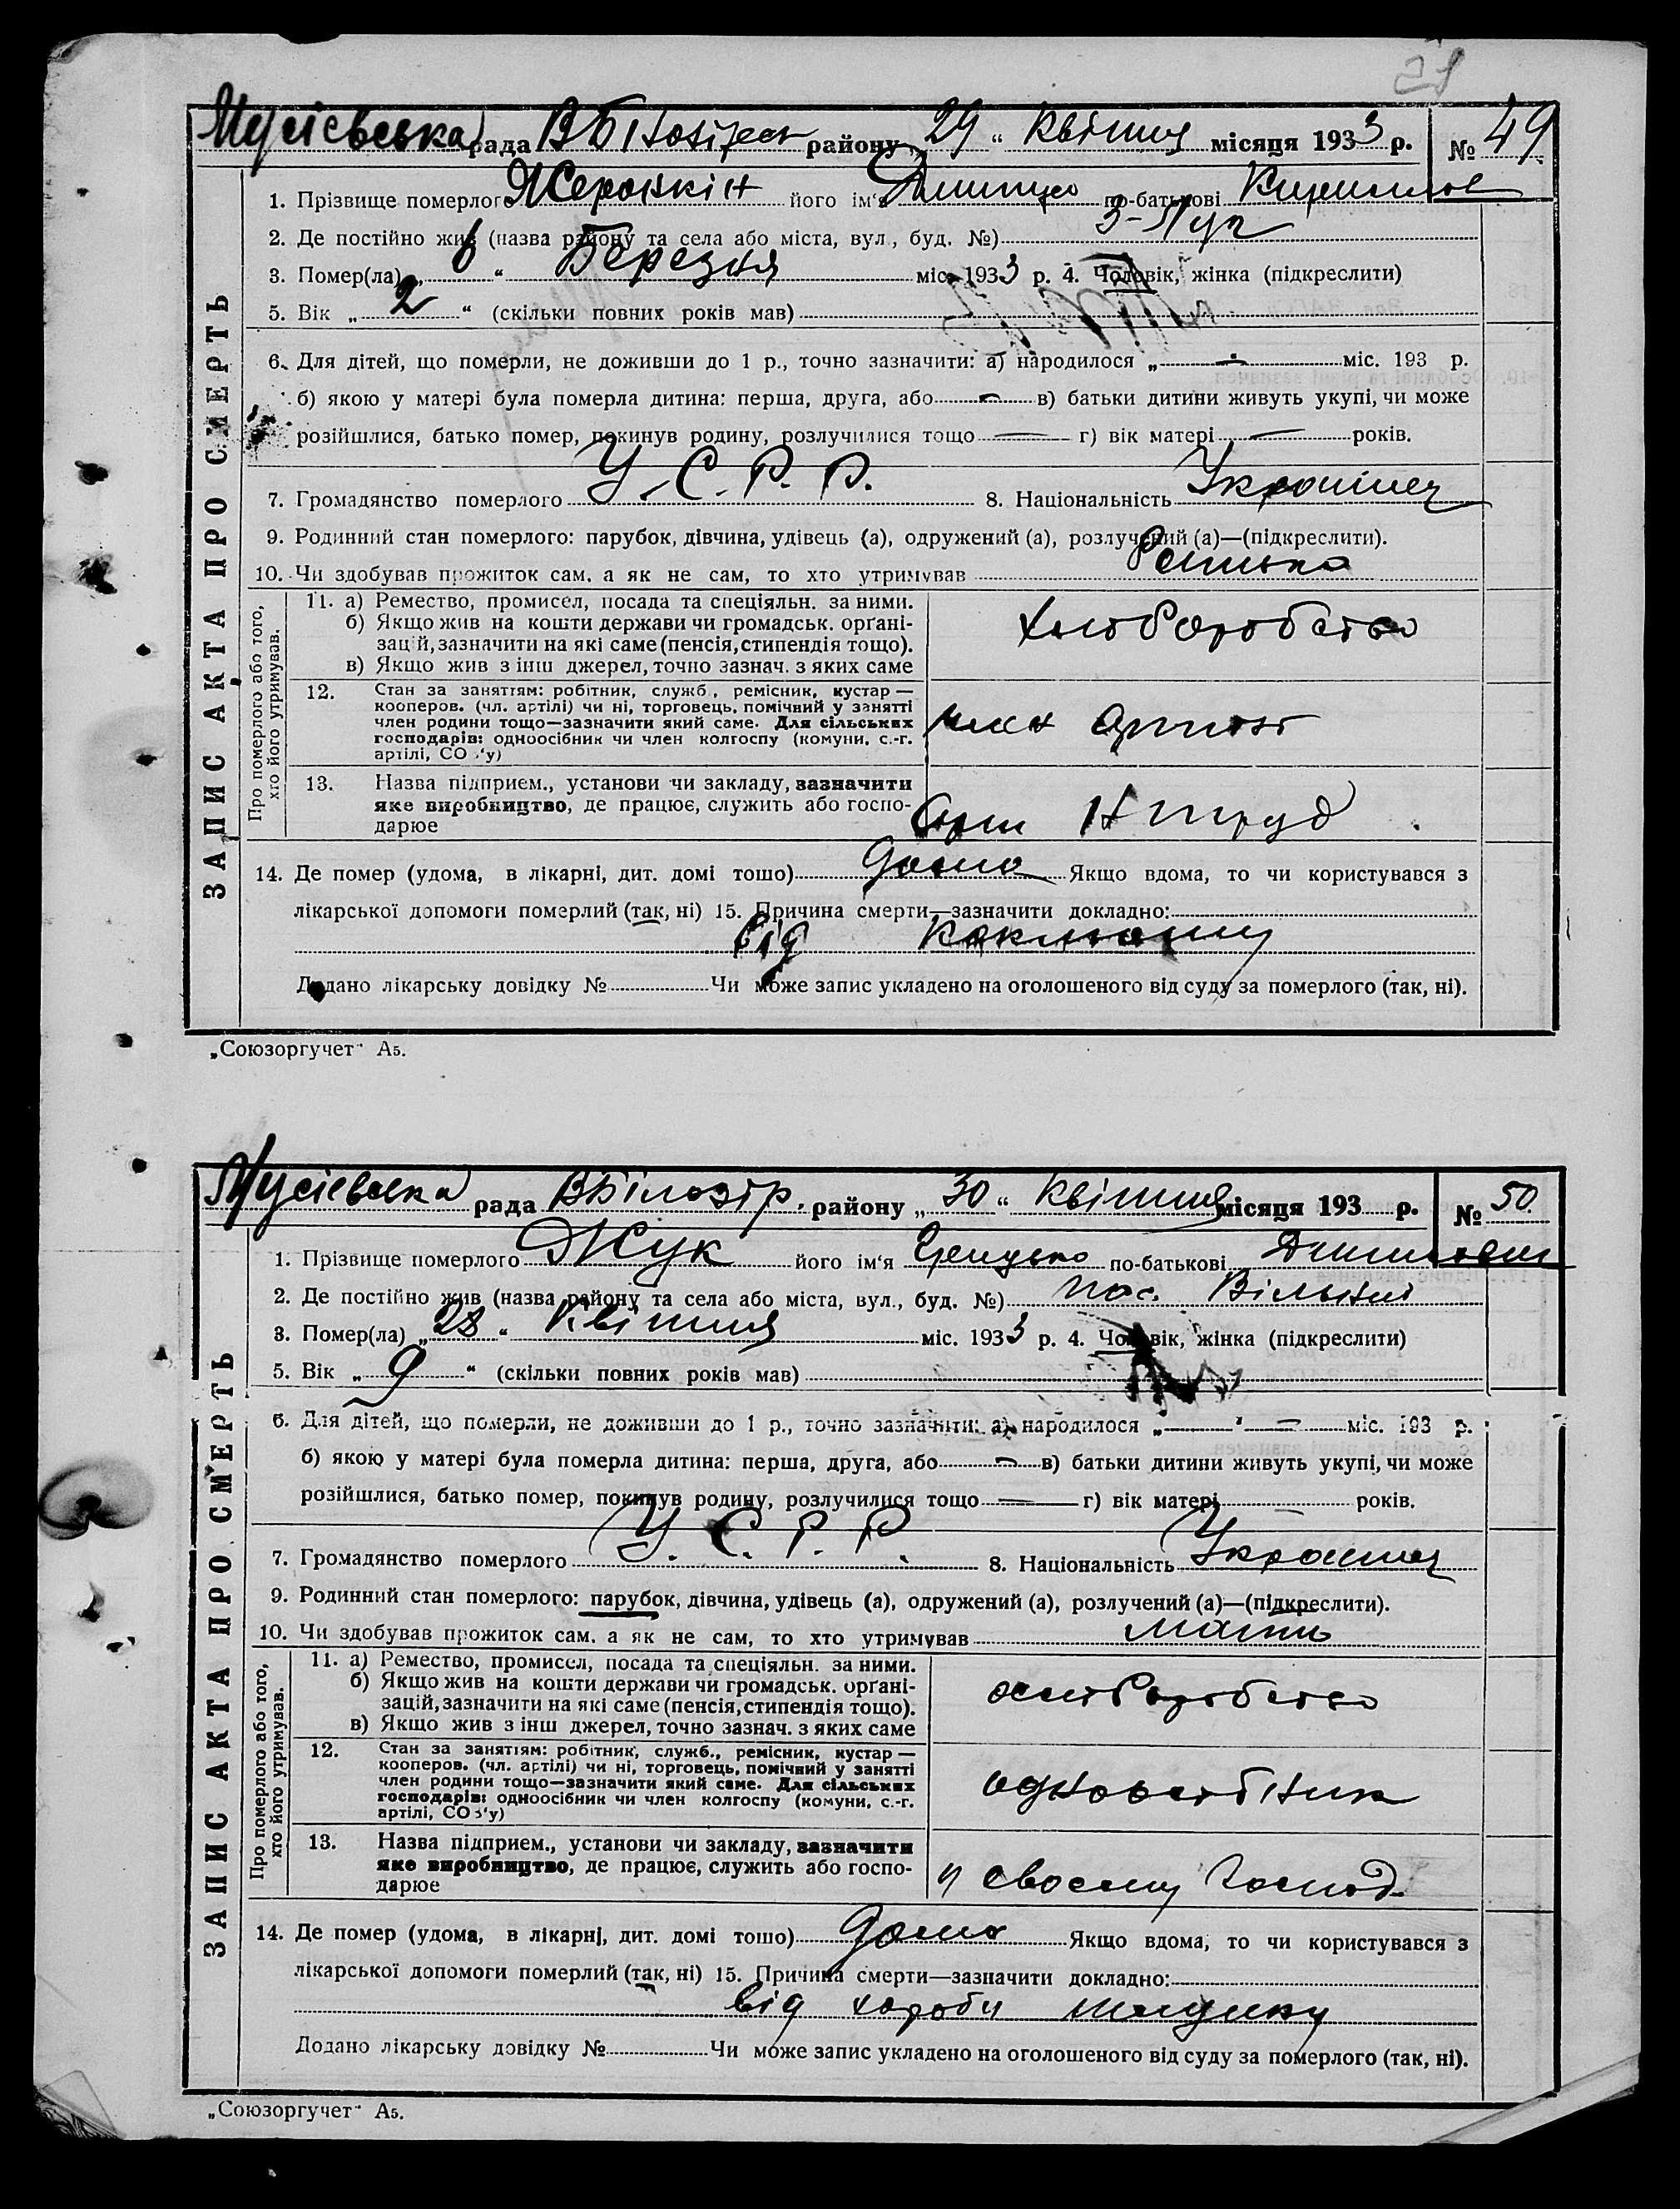 21
Мусієвська рада ВБілозірськ району „29“ Квітня місяця 1933 р. № 49
1. Прізвище померлого Жеронкін його ім'я Дмитро по-батькові Кирилов
2. Де постійно жив (назва району та села або міста, вул., буд. №)
3. Помер(ла) „6“ Березня міс. 1933 р. 4. Чоловік, жінка (підкреслити)
5. Вік „2“ (скільки повних років мав)
6. Для дітей, що померли, не доживши до 1 р., точно зазначити: а) народилося „ — міс. 193 р.
б) якою у матері була померла дитина: перша, друга, або — в) батьки дитини живуть укупі, чи може
розійшлися, батько помер, покинув родину, розлучилися тощо — г) вік матері — років.
7. Громадянство померлого У.С.Р.Р. 8. Національність Українец
9. Родинний стан померлого: парубок, дівчина, удівець (а), одружений (а), розлучений (а)—(підкреслити).
10. Чи здобував прожиток сам, а як не сам, то хто утримував
ЗАПИС АКТА ПРО СМЕРТЬ
Про померлого або того, хто його утримував.
11. а) Ремество, промисел, посада та спеціяльн. за ними.
б) Якщо жив на кошти держави чи громадськ. органі-
зацій, зазначити на які саме (пенсія, стипендія тощо).
в) Якщо жив з інш джерел, точно зазнач. з яких саме
хліборобство
12. Стан за заняттям: робітник, служб., ремісник, кустар —
кооперов. (чл. артілі) чи ні, торговець, помічний у занятті
член родини тощо—зазначити який саме. Для сільських
господарів: одноосібник чи член колгоспу (комуни, с.-г.
артілі, СОЗ'у)
член артілі
13. Назва підприєм., установи чи закладу, зазначити
яке виробництво, де працює, служить або госпо-
дарюе
Арт Н труд
14. Де помер (удома, в лікарні, дит. домі тощо) дома Якщо вдома, то чи користувався з
лікарської допомоги померлий (так, ні) 15. Причина смерти—зазначити докладно:
від Коклюшу
Додано лікарську довідку № Чи може запис укладено на оголошеного від суду за померлого (так, ні).
„Союзоргучет“ А5.
Мусієвська рада ВБілозір. району „30“ Квітня місяця 193 р. № 50.
1. Прізвище померлого Жук його ім'я Грицько по-батькові Данилович
2. Де постійно жив (назва району та села або міста, вул., буд. №) пос. Вільний
3. Помер(ла) „28“ Квітня міс. 1933 р. 4. Чоловік, жінка (підкреслити)
5. Вік „9“ (скільки повних років мав)
6. Для дітей, що померли, не доживши до 1 р., точно зазначити: а) народилося „ — “ — міс. 193 р.
б) якою у матері була померла дитина: перша, друга, або — в) батьки дитини живуть укупі, чи може
розійшлися, батько помер, покинув родину, розлучилися тощо — г) вік матері років.
7. Громадянство померлого У.С.Р.Р. 8. Національність Українец
9. Родинний стан померлого: парубок, дівчина, удівець (а), одружений (а), розлучений (а)—(підкреслити).
10. Чи здобував прожиток сам, а як не сам, то хто утримував мать
ЗАПИС АКТА ПРО СМЕРТЬ
Про померлого або того, хто його утримував.
11. а) Ремество, промисел, посада та спеціяльн. за ними.
б) Якщо жив на кошти держави чи громадськ. органі-
зацій, зазначити на які саме (пенсія, стипендія тощо).
в) Якщо жив з інш джерел, точно зазнач. з яких саме
хліборобство
12. Стан за заняттям: робітник, служб., ремісник, кустар —
кооперов. (чл. артілі) чи ні, торговець, помічний у занятті
член родини тощо—зазначити який саме. Для сільських
господарів: одноосібник чи член колгоспу (комуни, с.-г.
артілі, СОЗ'у)
одноосібник
13. Назва підприєм., установи чи закладу, зазначити
яке виробництво, де працює, служить або госпо-
дарює
у своєму господ.
14. Де помер (удома, в лікарні, дит. домі тощо) дома Якщо вдома, то чи користувався з
лікарської допомоги померлий (так, ні) 15. Причина смерти—зазначити докладно:
від хороби шлунку
Додано лікарську довідку № Чи може запис укладено на оголошеного від суду за померлого (так, ні).
„Союзоргучет“ А5.